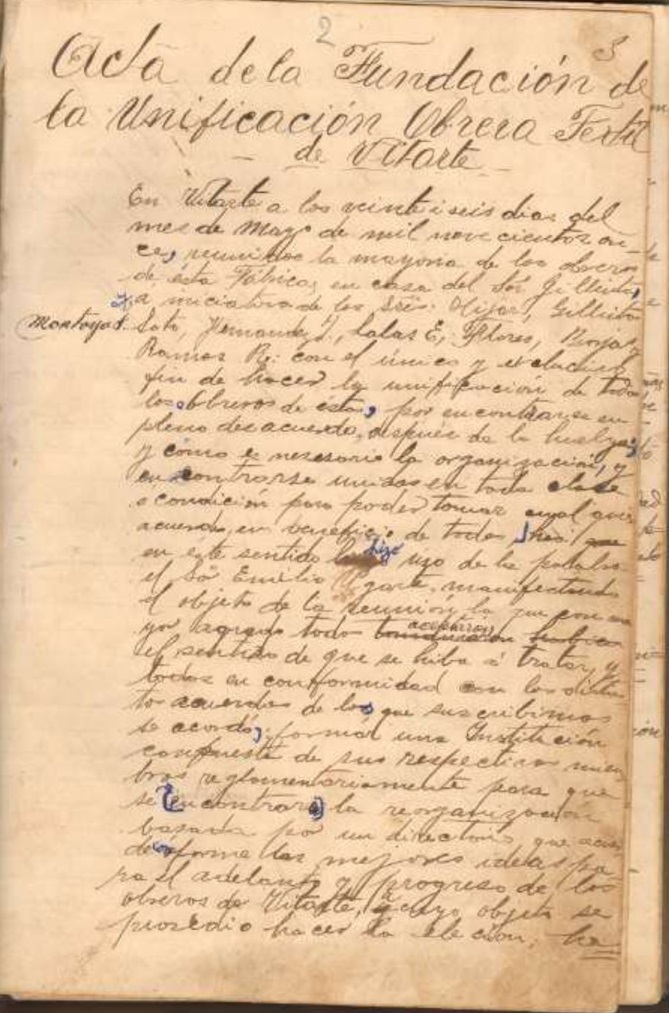 2 3
Acta de la Fundación de
la Unificación Obrera Textil
de Vitarte
En Vitarte a los veinte i seis dias del
mes de Mayo de mil nove cientos on-
ce, reunidos la mayoria de los obreros
de ésta Fábrica, en casa del Sor
a iniciativa de los Sres. Hijar,
Montoya J. Soto, Fernandez J., Salas E, Flores, Borjas
Ramos R. con el único y exclusivo
fin de hacer la unificación de todos
los obreros de ésta, por encontrarse en
pleno desacuerdo, después de la huelga;
y como es nesesario la organización, y
encontrarse unidos en toda clase
o condición para poder tomar cual quier
acuerdo en beneficio de todos
en este sentido hizo uzo de la palabra
el Sor Emilio Ugarte, manifestando
el objeto de la reunión, la que con ma
yor agrado todo
el sentido de que se hiba á tratar, y
todos en conformidad con los distin
tos acuerdos de los que suscribimos
se acordó; formar una Institución
compuesta de sus respectivos miem
bros reglamentariamente para que
se (encontrara) la reorganización
basada por un directorio que
de forme las mejores ideas pa
ra el adelanto y progreso de los
obreros de Vitarte, a cuyo objeto se
prosedio hacer la elecion; ha